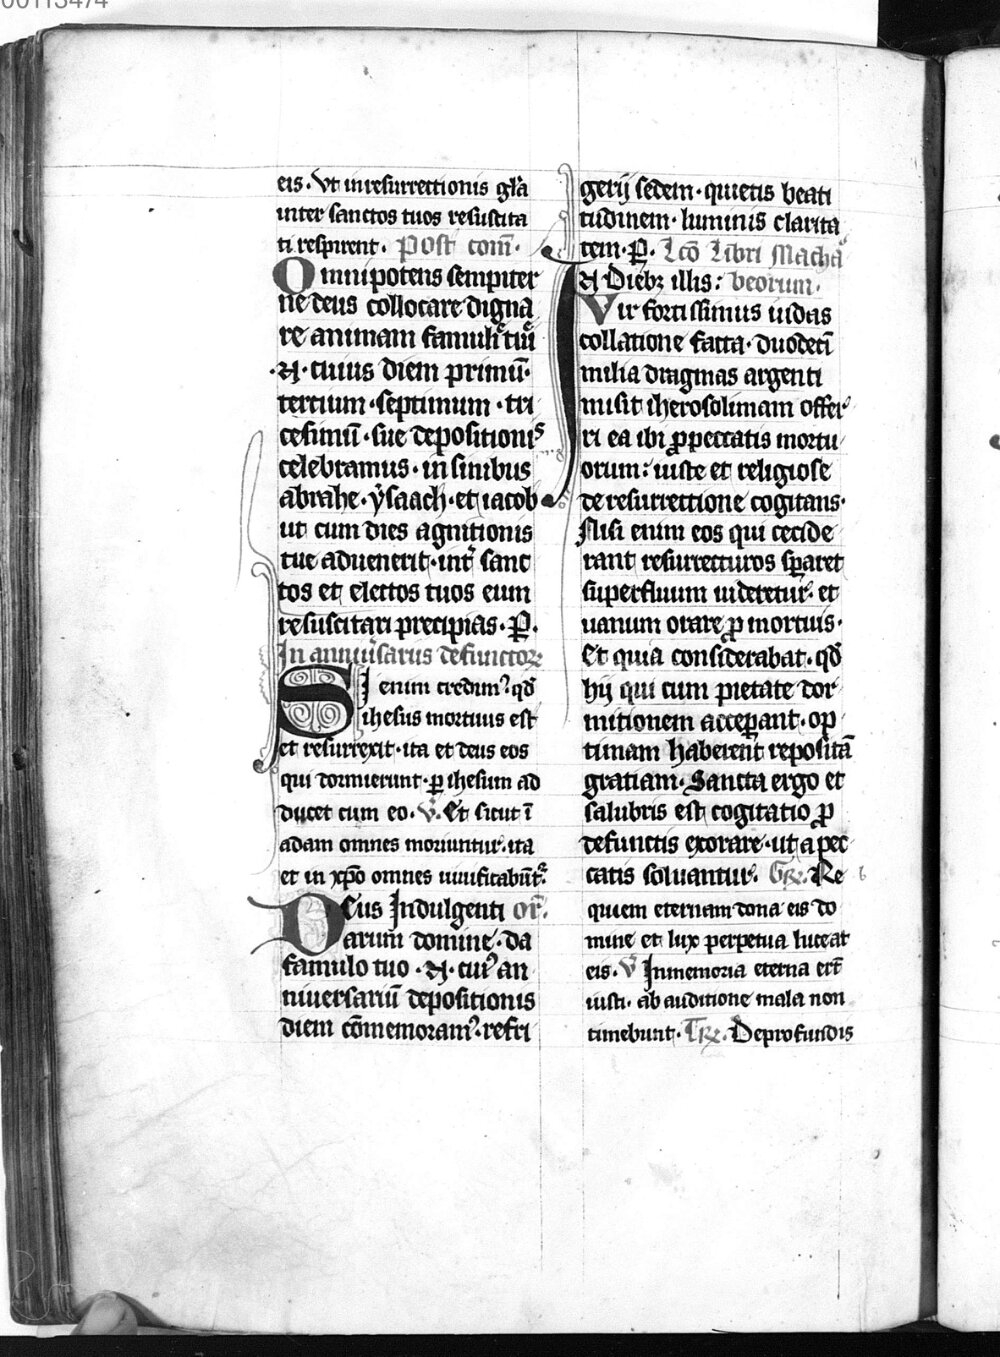 00113474
eis. Vt in resurrectionis gl̄a
inter sanctos tuos resuscita
ti respirent. Post com̄.
Omnipotens sempiter
ne deus collocare digna
re animam famuli tui
.N. cuius diem primū.
tercium. septimum. tri
cesimū. sue depositionis
celebramus. in sinibus
abrahe. ysaach. et iacob
ut cum dies agnitionis
tue aduenerit. int̄ sanc
tos et electos tuos eum
resuscitari precipias. P.
In anniūsariis defunctoꝝ
SI enim credimꝰ qd̄
ihesus mortuus est
et resurrexit. ita et deus eos
qui dormierunt. ꝑ ihesum ad
ducet cum eo. V. Et sicut ī
adam omnes moriuntur. ita
et in xp̄o omnes uiuificabūt.
DEus Indulgenti or̄.
arum domine. da
famulo tuo .N. cuiꝰ an
niuersariū depositionis
diem cōmemoramꝰ. refri
gerij sedem. quietis beati
tudinem. luminis clarita
tem. P. Lc̄o Libri Macha
IN Diebꝫ illis: beorum.
Vir fortissimus iudas
collatione facta. duodecī
milia dragmas argenti
misit iherosolimam offer
ri ea ibi ꝓ peccatis mortu
orum: iuste et religiose
de resurrectione cogitans.
Nisi enim eos qui cecide
rant resurrecturos sꝑaret
superfluum uideretur. et
uanum orare ꝓ mortuis.
Et quia considerabat. qd̄
hij qui cum pietate dor
mitionem acceꝑant. op
timam haberent repositā
gratiam. Sancta ergo et
salubris est cogitatio ꝓ
defunctis exorare. ut a pec
catis soluantur. Gr̄. Re
quiem eternam dona eis do
mine et lux perpetua luceat
eis. V Inmemoria eterna erit
iusti. ab auditione mala non
timebunt. Tr̄. Deprofundis